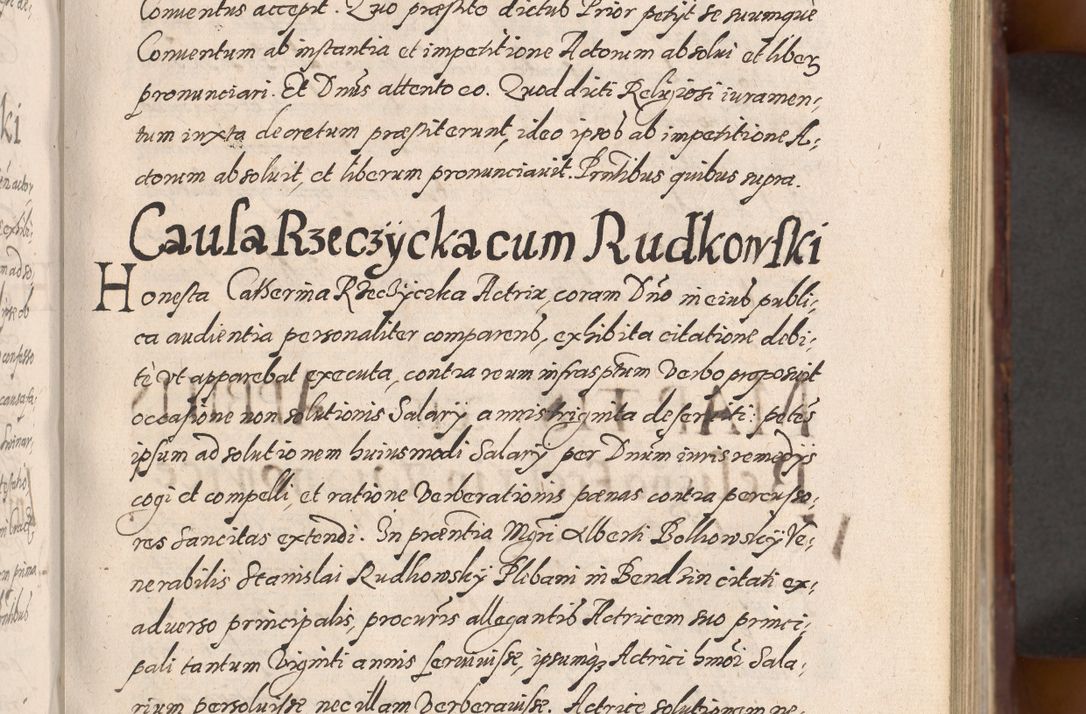 Conventus accepit. Quo præstito dictus Prior petijt se suumque
Conventum ab instantia et impetitione Actorum absolui et liber
pronunciari. Et Dnus attento eo. Quod dicti Religiosi iuramen,
tum iuxta decretum præstiterunt, ideo ipsos ab impetitione A,
ctorum absoluit, et liberum pronunciauit. Prntibus quibus supra.
Causa Rzeczÿcka cum Rudkowski
Honesta Catherina Rzeczÿczka Actrix, coram Dno in eius publi,
ca audientia personaliter comparens, exhibita citatione debi,
tè vt apparebat executa, contra reum infrasptum verbo proposuit
occasione non solutionis Salarÿ annis triginta deseruiti: petens
ipsum ad solutionem huiusmodi Salarÿ per Dnum iuris remedÿs
cogi et compelli, et ratione verberationis pænas contra percusso,
res sancitas extendi. In præntia Mgri Alberti Bolkowskÿ Ve,
nerabilis Stanislai Rudkowskÿ Plebani in Bendsin citati ex,
aduerso principalis, procuris allegantis Actricem suo princi,
pali tantum viginti annis seruiuisse, ipsumq3 Actrici hmoi Sala,
rium persoluisse nec illam verberauisse. Actrice solutionem ne,